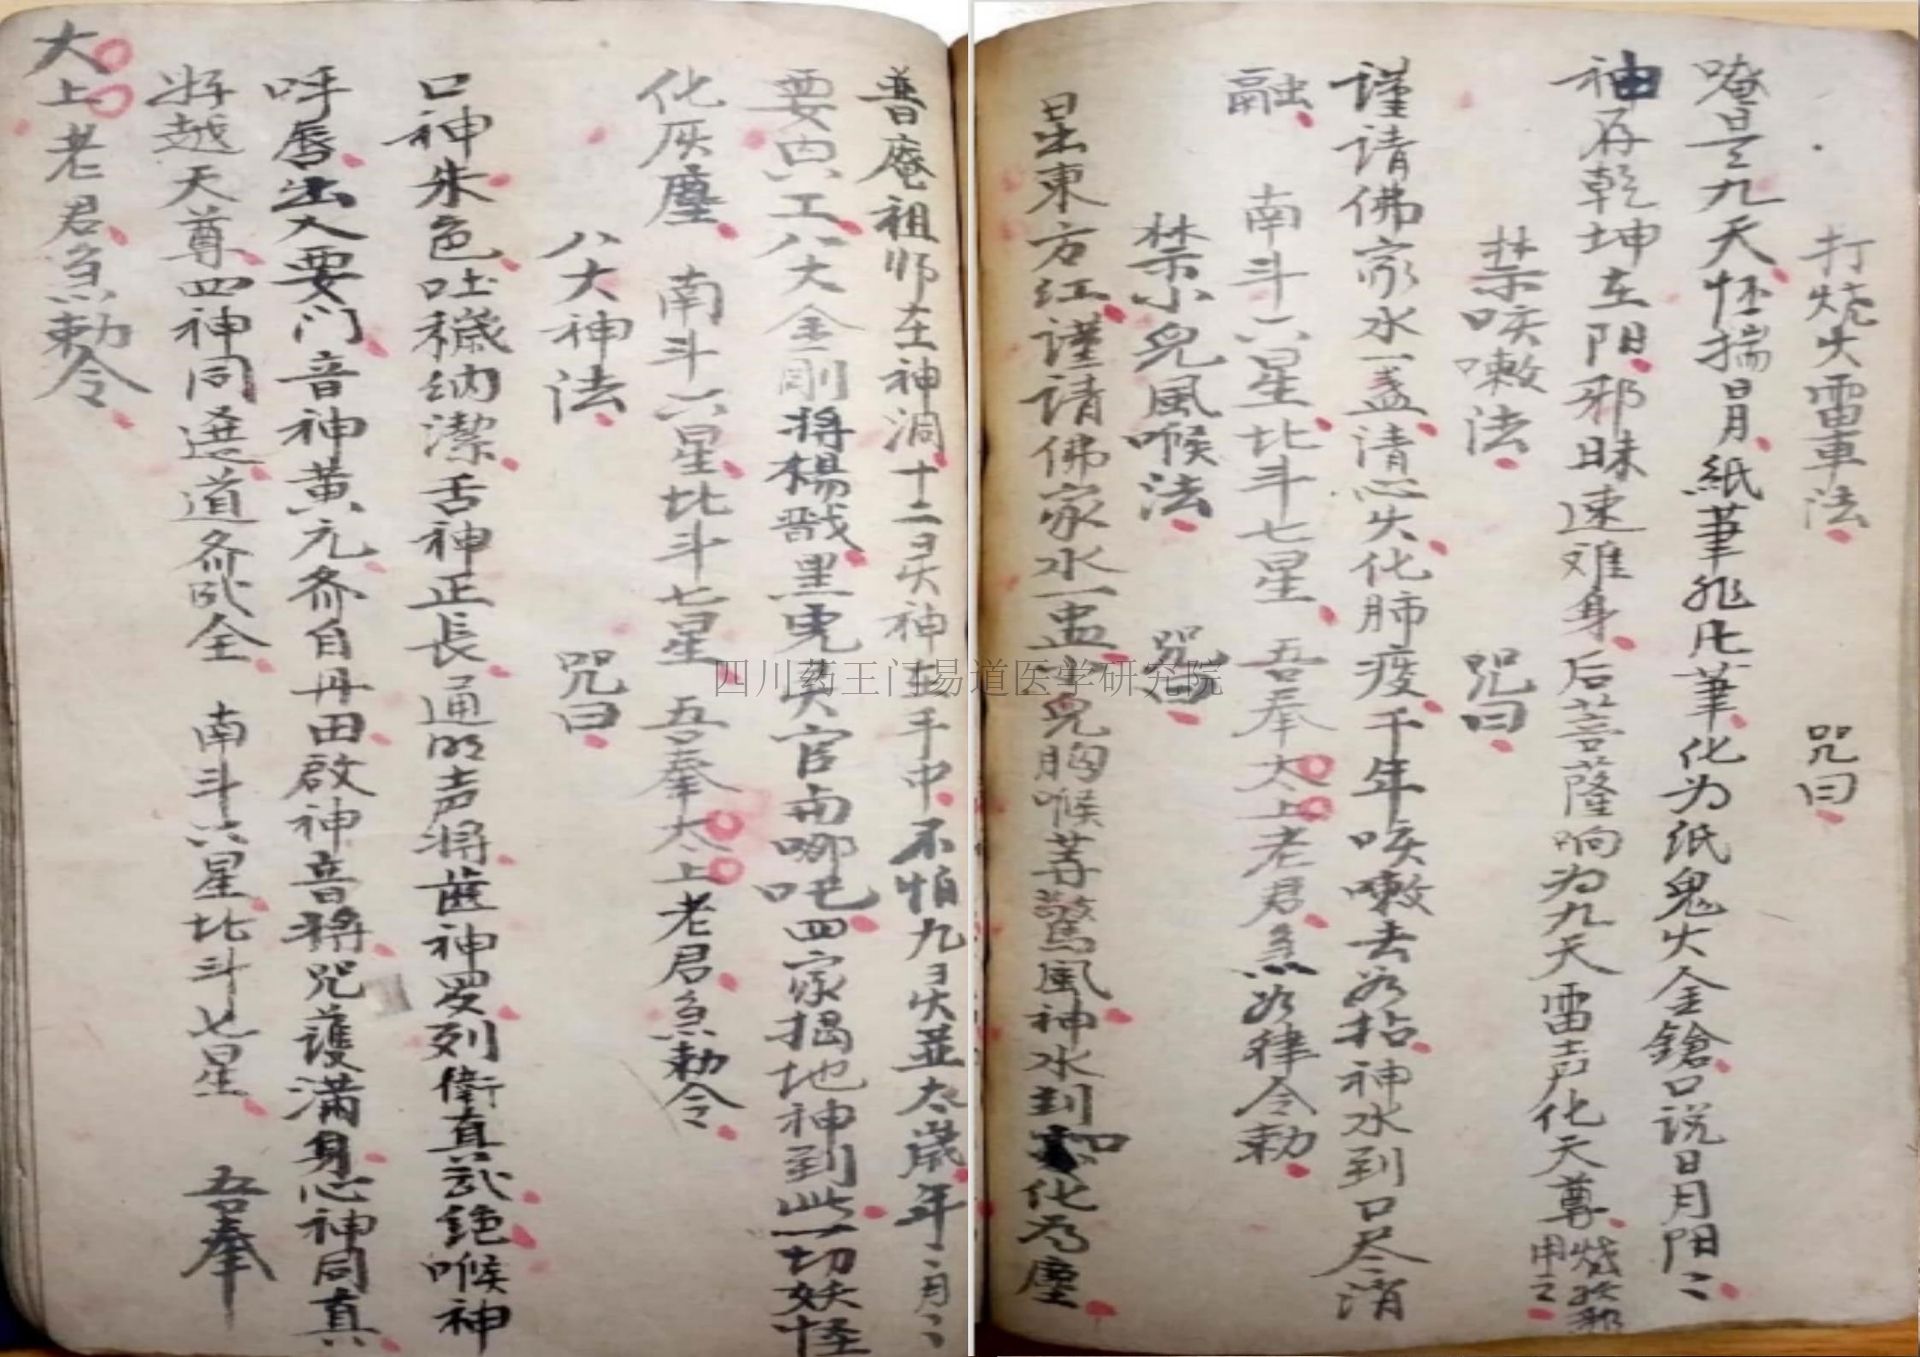 打烧火雷車法 咒曰
唵是九天怀揣日月紙筆非凡筆化为紙鬼火金鎗口说日月阳〻
神存乾坤在阴邪昧速难身后菩薩响为九天雷声化天尊烧妖邪用之
禁咳嗽法 咒曰
谨请佛家水一盏清心火化肺疫千年咳嗽去如拈神水到口尽消
融 南斗六星北斗七星 吾奉太上老君急急如律令勅
禁小兒風喉法 咒曰
日出東方红謹請佛家水一盅小兒胸喉等驚風神水到口化为塵
普庵祖师在神洞十二日头神在手中不怕九日头並太歲年〻月〻
要内六工八大金剛將楊戩黑虎灵官南哪吒四家揭地神到此一切妖怪
化灰塵 南斗六星北斗七星 吾奉太上老君急勅令
八大神法 咒曰
口神朱色吐穢納潔舌神正長通明声将齒神罗列衛真武绝喉神
呼唇出入要门音神黃元齐自丹田啟神音將咒護滿身心神同真
将越天尊四神同送道齐武全 南斗六星北斗七星 吾奉
太上老君急勅令
四川药王门易道医学研究院